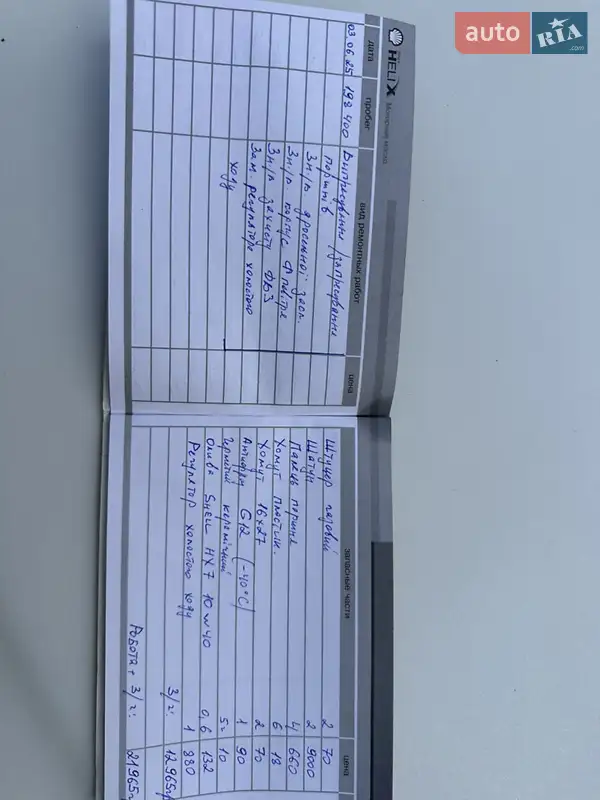 auto RIA .com
HELIX Моторные масла
дата пробег вид ремонтных работ цена
03.06.25 198 400 Випресування/запресування
поршнів
Зн/в дросельної засл.
Зн/в корпус ф повітря
Зн/в захисту ДВЗ
Зам. регулятора холостого
ходу
запасные части цена
Штуцер газовий 2 70
Шатун 2 9000
Палець поршня 4 660
Хомут пластик. 6 18
Хомут 16x27 2 70
Антифриз G12 (-40°C) 1 90
Герметик керамічний 5г 10
Олива SHELL HX7 10w40 0,6 132
Регулятор холостого ходу 1 880
З/ч: 12965г
Робота + З/ч: 21965г